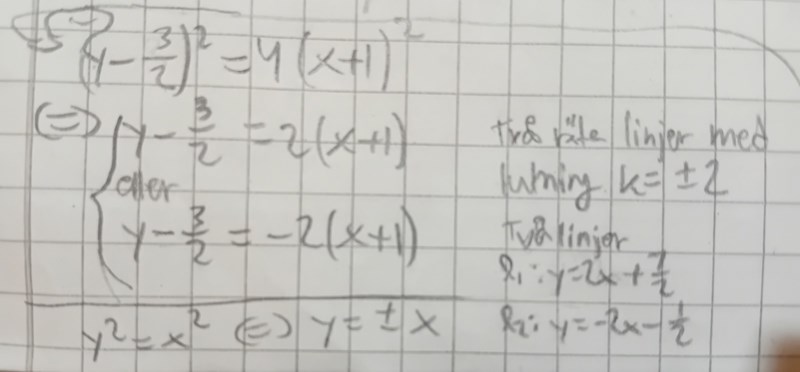 (y - 3/2)² = 4(x+1)²
⇔ { y - 3/2 = 2(x+1)
eller
y - 3/2 = -2(x+1)
y² = x² ⇔ y = ± x
två räta linjer med
lutning k = ± 2
Två linjer
l₁: y = 2x + 7/2
l₂: y = -2x - 1/2